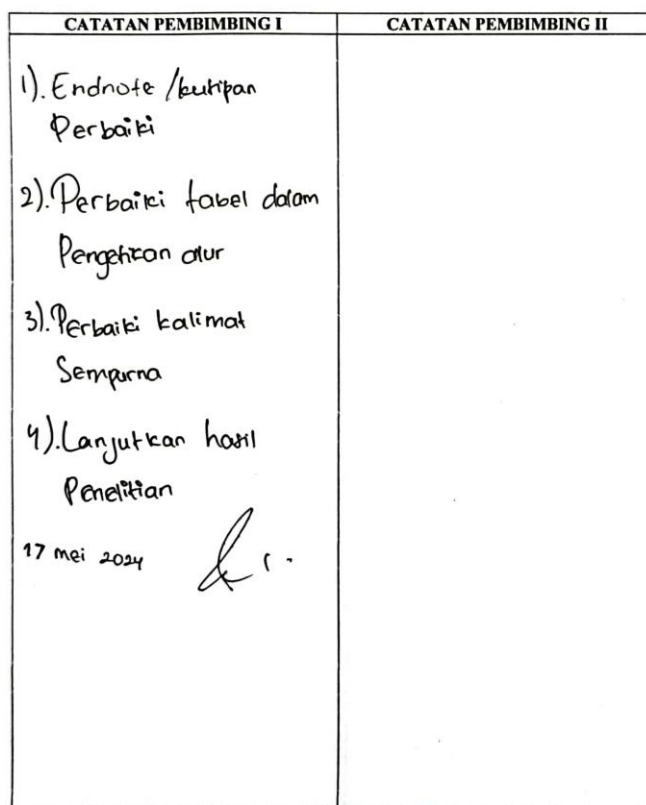 CATATAN PEMBIMBING I
CATATAN PEMBIMBING II
1). Endnote / kutipan
Perbaiki
2). Perbaiki tabel dalam
Pengetikan alur
3). Perbaiki kalimat
Sempurna
4). Lanjutkan hasil
Penelitian
17 mei 2024